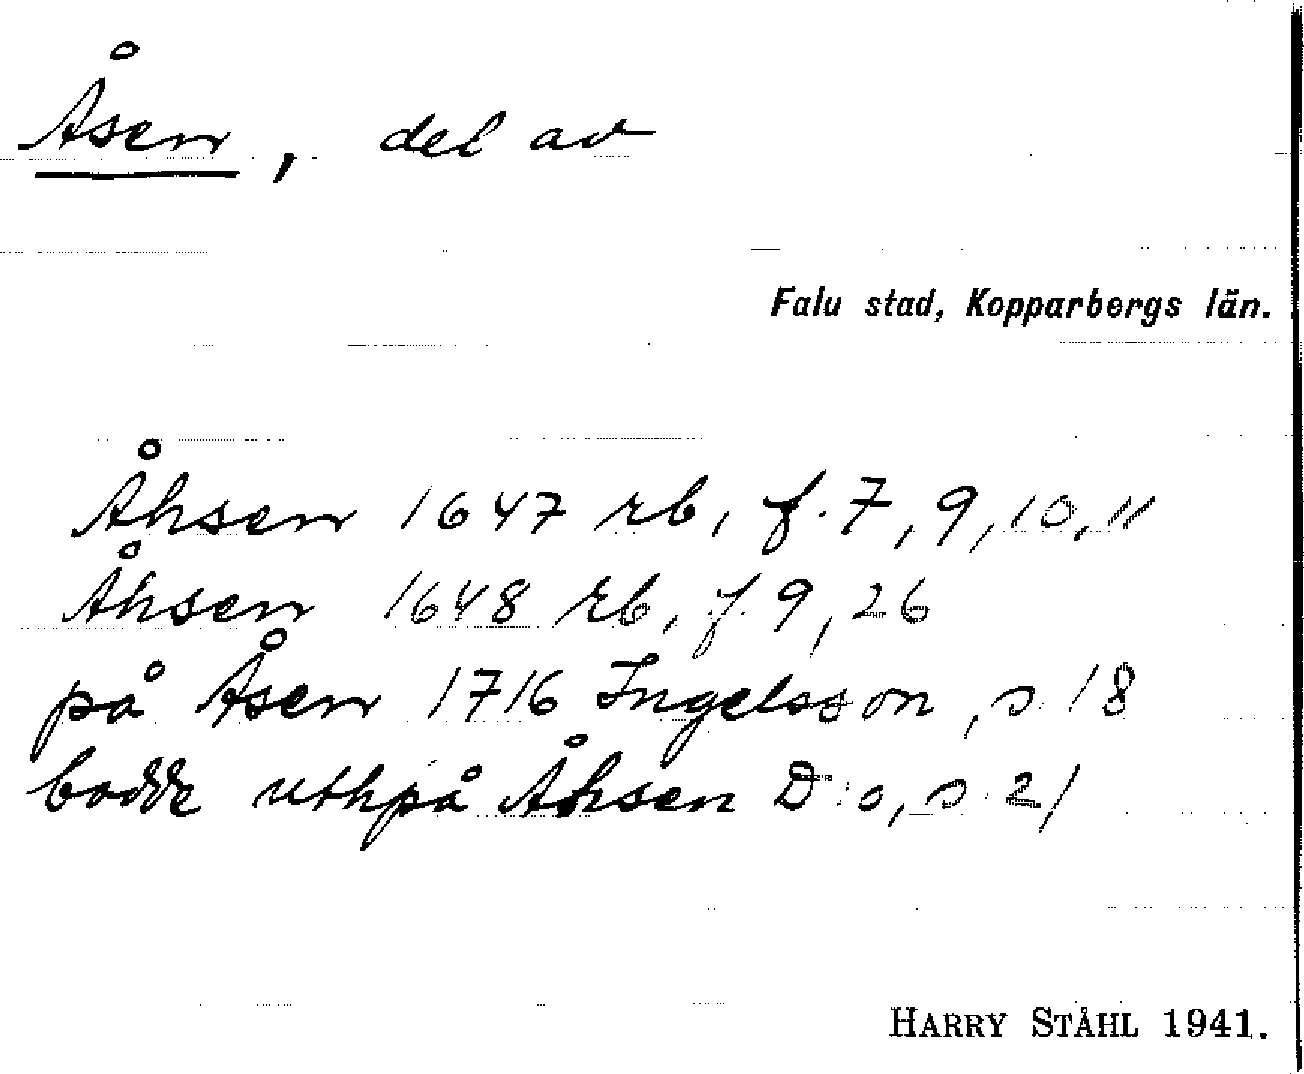 Åsen, del av
Falu stad, Kopparbergs län.
Åhsen 1647 rb, f. 7, 9, 10, 11
Åhsen 1648 rb, f. 9, 26
på Åsen 1716 Ingelsson, s. 18
bodde uthpå Åhsen D:o, s. 21
HARRY STÅHL 1941.